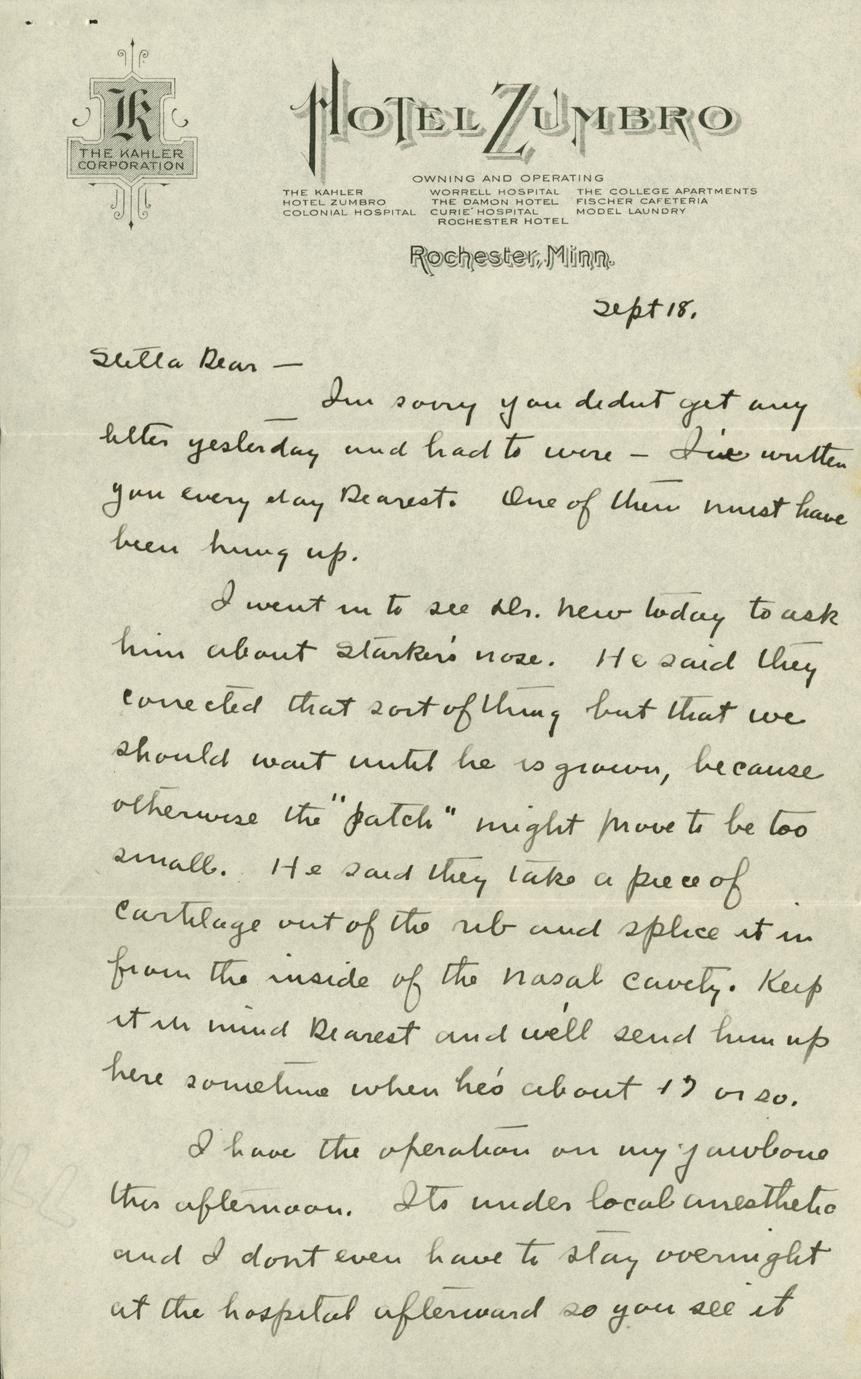 K
THE KAHLER
CORPORATION
HOTEL ZUMBRO
OWNING AND OPERATING
THE KAHLER WORRELL HOSPITAL THE COLLEGE APARTMENTS
HOTEL ZUMBRO THE DAMON HOTEL FISCHER CAFETERIA
COLONIAL HOSPITAL CURIE HOSPITAL MODEL LAUNDRY
ROCHESTER HOTEL
Rochester, Minn.
Sept 18.
Stella Dear —
I'm sorry you didnt get any
letter yesterday and had to worre — I've written
you every day Dearest. One of them must have
been hung up.
I went in to see Dr. New today to ask
him about Starker's nose. He said they
corrected that sort of thing but that we
should wait until he is grown, because
otherwise the "patch" might prove to be too
small. He said they take a piece of
cartilage out of the rib and splice it in
from the inside of the nasal cavety. Keep
it in mind Dearest and we'll send him up
here sometime when he's about 17 or so.
I have the operation on my jawbone
this afternoon. Its under local anesthetic
and I dont even have to stay overnight
at the hospital afterward so you see it